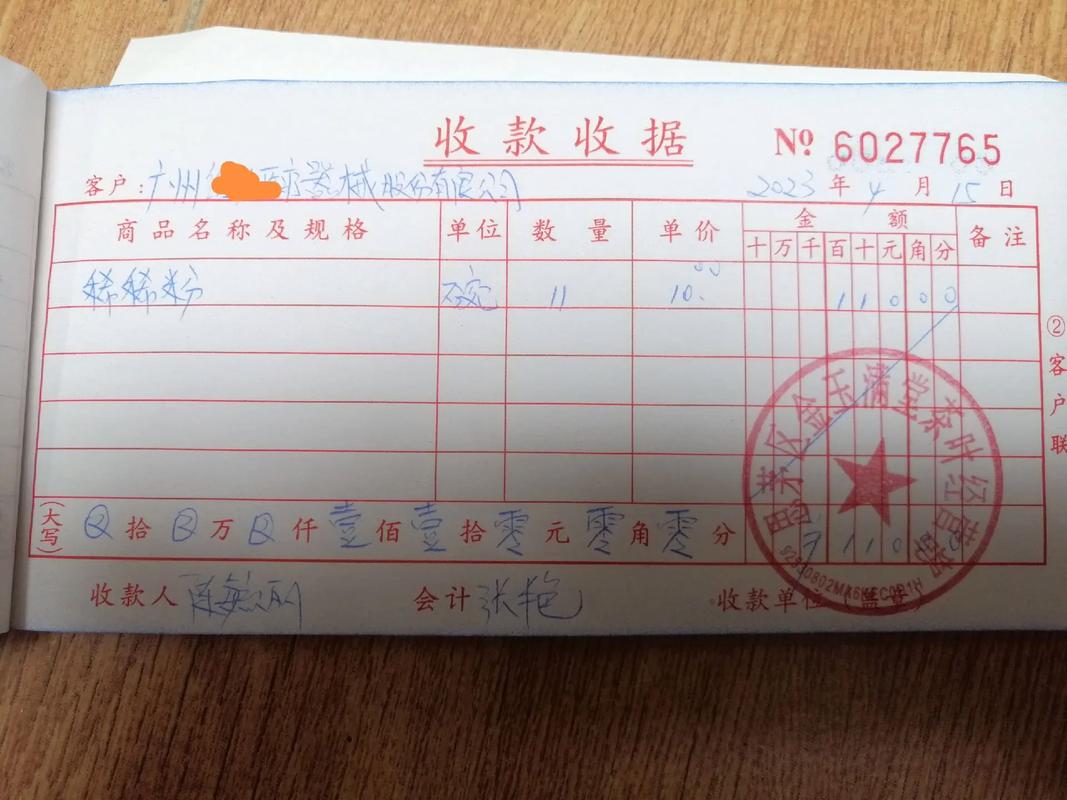 收款收据
№ 6027765
客户：广州 医疗器械股份有限公司
2023年4月15日
商品名称及规格 单位 数量 单价 金额 备注
十万千百十元角分
稀稀粉 碗 11 10.00 11000
(大写) 拾 万 仟壹佰壹拾零元零角零分 ¥110
②客户联
收款人 会计 张艳 收款单位(盖章)
思茅区金玉满堂茶叶经营部